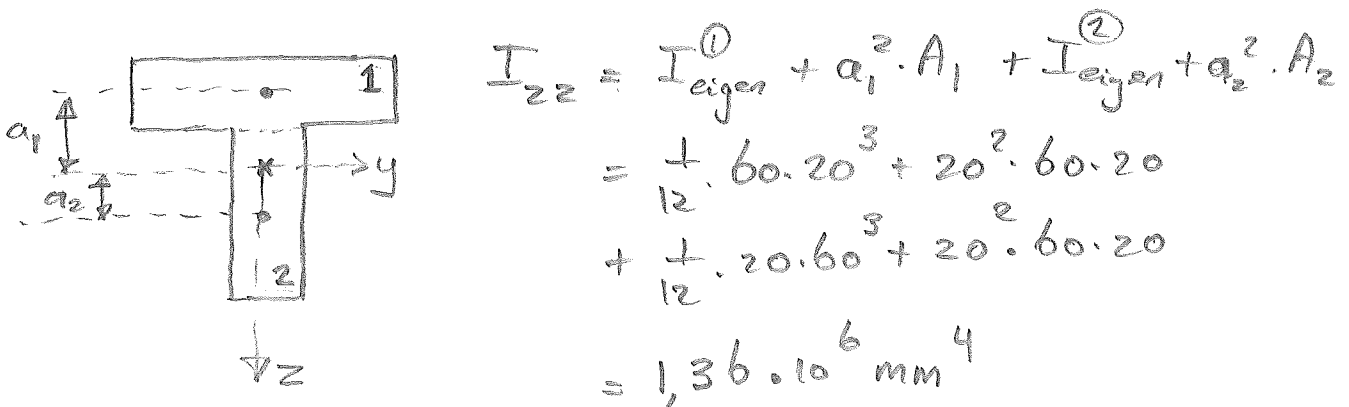 1
a₁
y
a₂
2
z
I_zz = I_eigen^① + a₁² · A₁ + I_eigen^② + a₂² · A₂
= 1/12 · 60 · 20³ + 20² · 60 · 20
+ 1/12 · 20 · 60³ + 20² · 60 · 20
= 1,36 · 10⁶ mm⁴